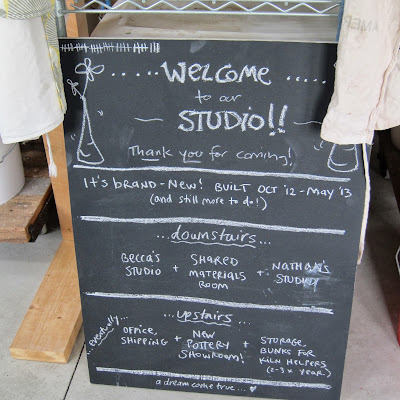 ..... WELCOME .....
to our
STUDIO!!
Thank you for coming!
IT'S BRAND-NEW! BUILT OCT '12 - MAY '13
(and still more to do!)
...downstairs...
BECCA'S STUDIO + SHARED MATERIALS ROOM + NATHAN'S STUDIO
...upstairs...
...eventually...
OFFICE, SHIPPING + NEW POTTERY SHOWROOM! + STORAGE, BUNKS FOR KILN HELPERS (2-3 x YEAR)
a dream come true...